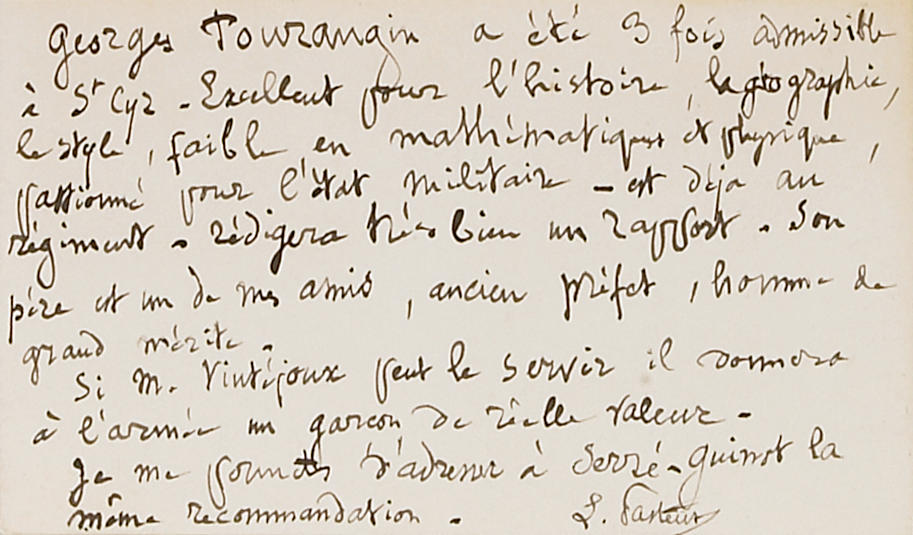 Georges Tourangin a été 3 fois admissible
à St Cyr - Excellent pour l'histoire, la géographie,
le style, faible en mathématiques et physique,
passionné pour l'état militaire - est déjà au
régiment - rédigera très bien un rapport - Son
père est un de mes amis, ancien préfet, homme de
grand mérite.
Si M. Vintéjoux peut le servir il donnera
à l'armée un garçon de réelle valeur -
Je me permets d'adresser à Serré-Guinot la
même recommandation -
L. Pasteur